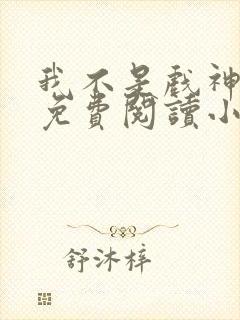 我不是戲神
免費閱讀小
舒沐梓